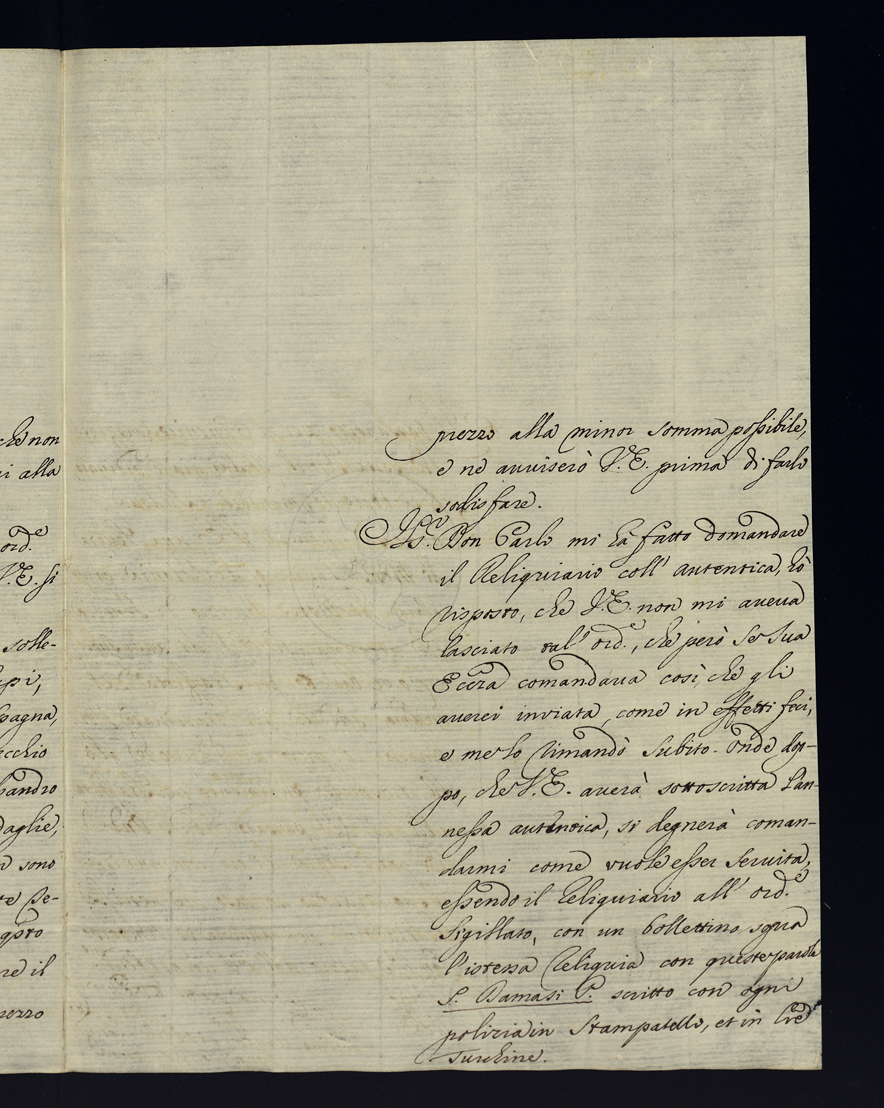 che non
i alla
ord.e
V.E. si
solle-
pi,
pagna,
ecchio
sandro
daglie,
n sono
te Pe-
qsto
re il
rezzo
prezzo alla minor somma possibile,
e ne avviserò V.E. prima di farlo
sodisfare.
Don Carlo mi hà fatto domandare
il Reliquiario coll' autentica, hò
risposto, che V.E. non mi aveva
lasciato tal' ord.e, che però se Sua
Eccza comandava così, che gli
averei inviata, come in effetti feci,
e me lo rimandò subito. Onde dop-
po, che V.E. averà sottoscritta l'an-
nessa autentica, si degnerà coman-
darmi come vuole esser servita,
essendo il Reliquiario all' ord.e
sigillato, con un bollettino sopra
l'istessa Reliquia con queste parole
S. Damasi P. scritto con ogni
polizia in stampatello, et in
turchine.